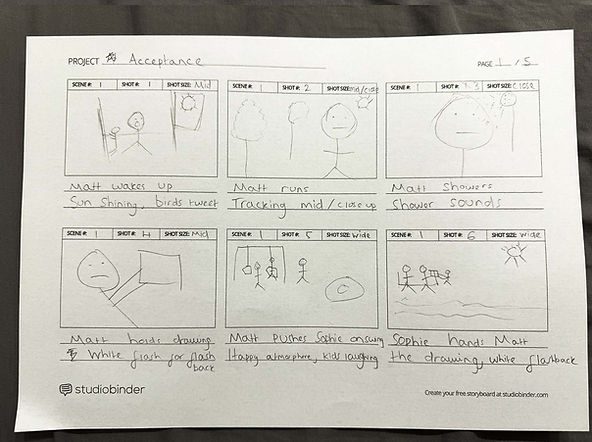 PROJECT Acceptance
PAGE 1 / 5
SCENE #: 1 SHOT #: 1 SHOT SIZE: Mid
SCENE #: 1 SHOT #: 2 SHOT SIZE: mid/close
SCENE #: 1 SHOT #: 3 SHOT SIZE: close
Matt wakes up
Sun shining, birds tweet
Matt runs
Tracking mid / close up
Matt showers
Shower sounds
SCENE #: 1 SHOT #: 4 SHOT SIZE: Mid
SCENE #: 1 SHOT #: 5 SHOT SIZE: wide
SCENE #: 1 SHOT #: 6 SHOT SIZE: wide
Matt holds drawing
White flash for flash
back
Matt pushes Sophie on swing
Happy atmosphere, kids laughing
Sophie hands Matt
the drawing, white flashback
studiobinder
Create your free storyboard at studiobinder.com.